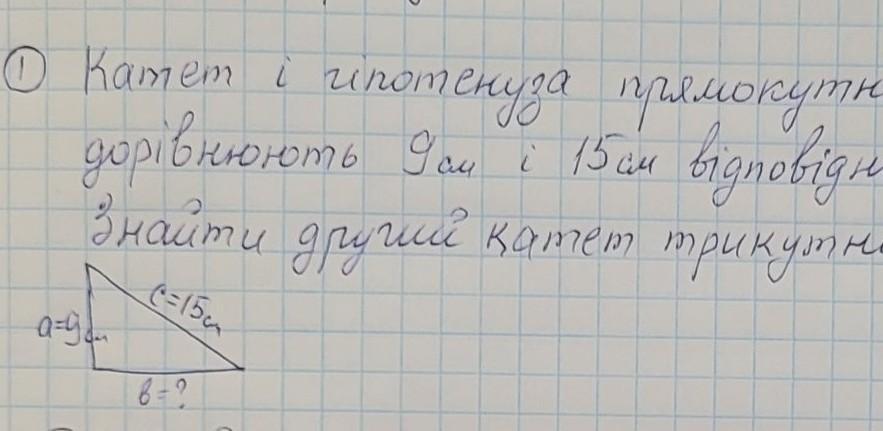 ① Катет і гіпотенуза прямокутн
дорівнюють 9см і 15см відповідн
Знайти другий катет трикутн
c=15см
a=9см
в=?